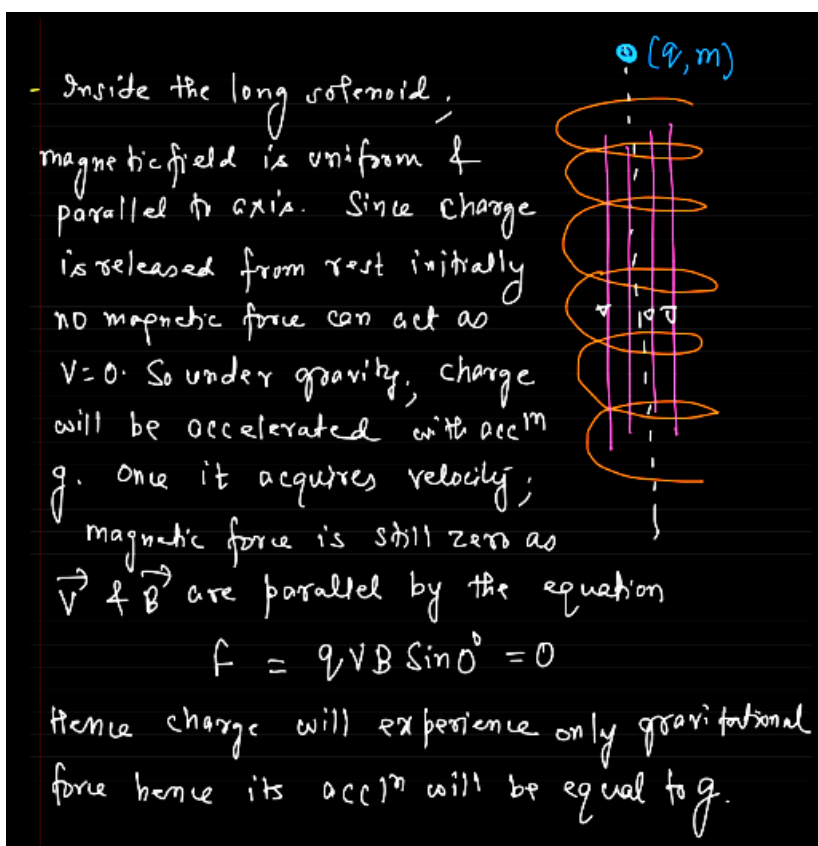 (q, m)
- Inside the long solenoid,
magnetic field is uniform &
parallel to axis. Since charge
is released from rest initially
no magnetic force can act as
V=0. So under gravity, charge
will be accelerated with accⁿ
g. Once it acquires velocity,
magnetic force is still zero as
V⃗ & B⃗ are parallel by the equation
F = qVB Sin0° = 0
Hence charge will experience only gravitational
force hence its acclⁿ will be equal to g.